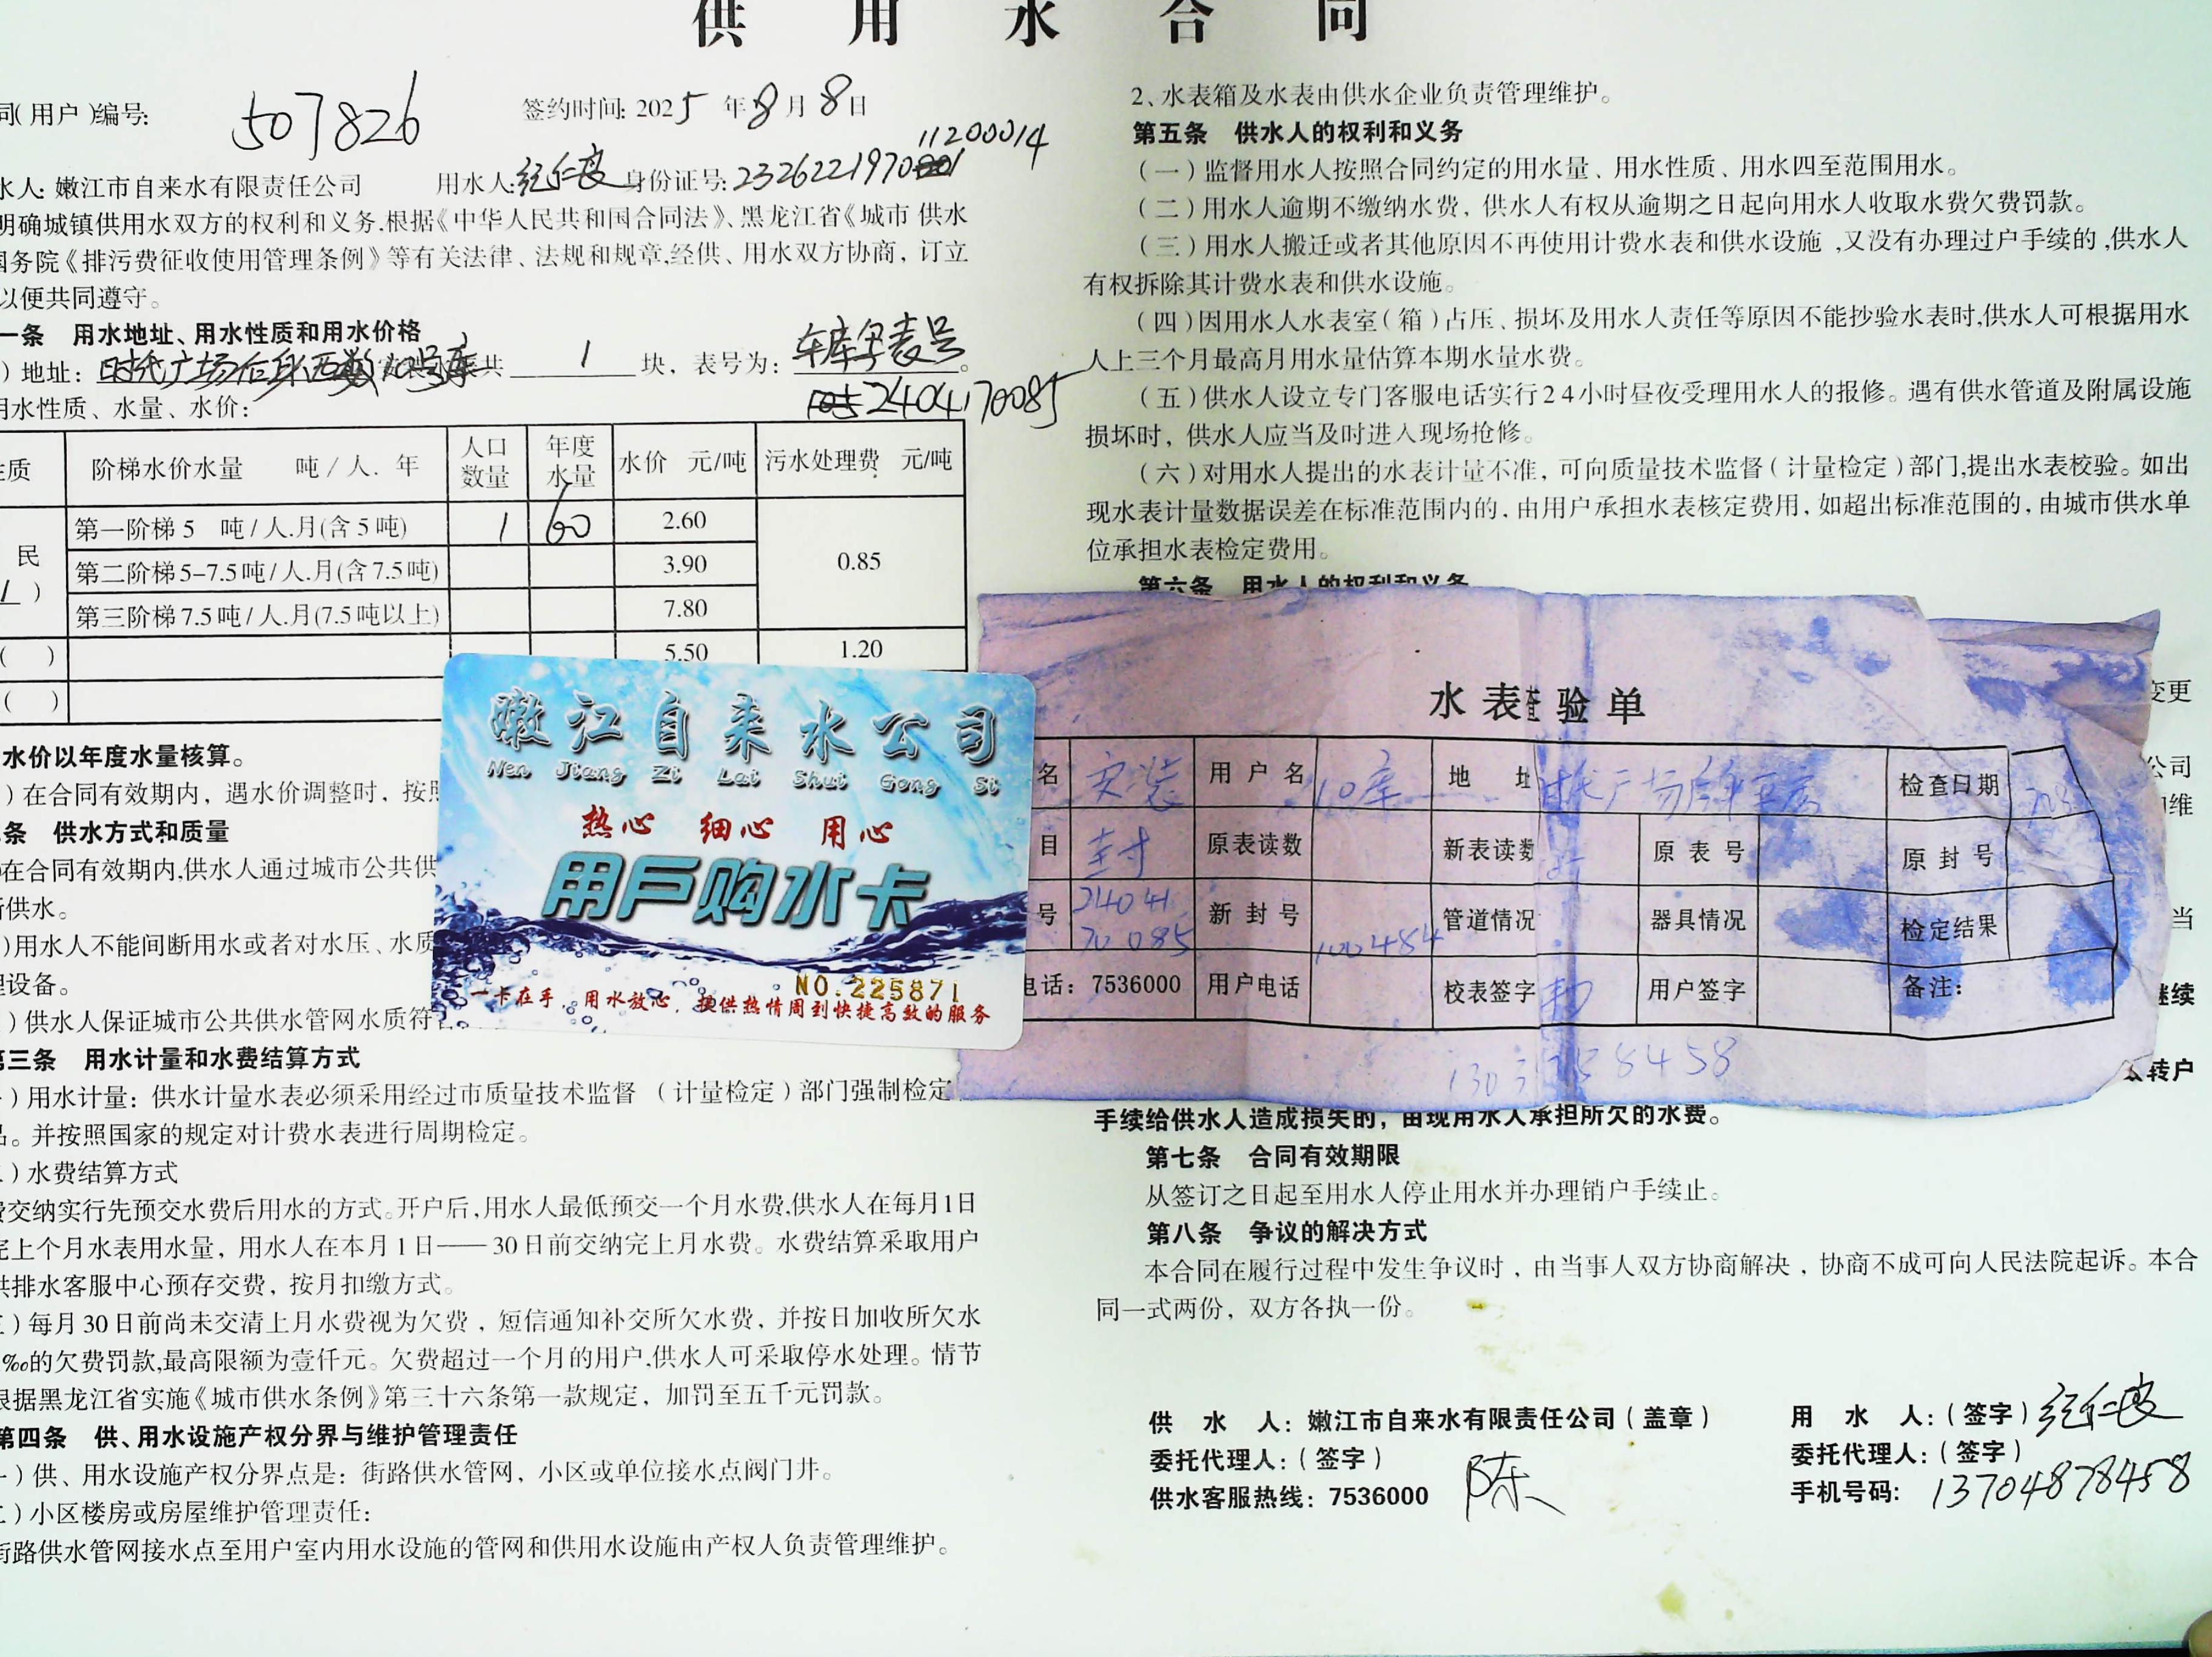 供 用 水 合 同
同(用户)编号: 507826 签约时间: 2025 年 8 月 8 日
11200014
水人: 嫩江市自来水有限责任公司 用水人: 身份证号: 2326221970
明确城镇供用水双方的权利和义务,根据《中华人民共和国合同法》、黑龙江省《城市 供水
国务院《排污费征收使用管理条例》等有关法律、法规和规章,经供、用水双方协商，订立
以便共同遵守。
一条 用水地址、用水性质和用水价格
)地址: 时代广场后身西数10号库 共 1 块，表号为: 车库 表号
用水性质、水量、水价: 2404170085
性质 阶梯水价水量 吨/人.年 人口数量 年度水量 水价 元/吨 污水处理费 元/吨
民 第一阶梯 5 吨/人.月(含5吨) 1 60 2.60 0.85
第二阶梯 5-7.5吨/人.月(含7.5吨) 3.90
第三阶梯 7.5吨/人.月(7.5吨以上) 7.80
( ) 5.50 1.20
( )
水价以年度水量核算。
)在合同有效期内，遇水价调整时，按照
条 供水方式和质量
)在合同有效期内,供水人通过城市公共供
供水。
)用水人不能间断用水或者对水压、水质
设备。
)供水人保证城市公共供水管网水质符合
第三条 用水计量和水费结算方式
)用水计量: 供水计量水表必须采用经过市质量技术监督 (计量检定)部门强制检定
品。并按照国家的规定对计费水表进行周期检定。
)水费结算方式
费交纳实行先预交水费后用水的方式。开户后,用水人最低预交一个月水费,供水人在每月1日
完上个月水表用水量，用水人在本月1日——30日前交纳完上月水费。水费结算采取用户
供排水客服中心预存交费，按月扣缴方式。
)每月30日前尚未交清上月水费视为欠费，短信通知补交所欠水费，并按日加收所欠水
‰的欠费罚款,最高限额为壹仟元。欠费超过一个月的用户,供水人可采取停水处理。情节
根据黑龙江省实施《城市供水条例》第三十六条第一款规定，加罚至五千元罚款。
第四条 供、用水设施产权分界与维护管理责任
)供、用水设施产权分界点是: 街路供水管网，小区或单位接水点阀门井。
)小区楼房或房屋维护管理责任:
街路供水管网接水点至用户室内用水设施的管网和供用水设施由产权人负责管理维护。
嫩江自来水公司
Nen Jiang Zi Lai Shui Gong Si
热心 细心 用心
用户购水卡
NO.225871
一卡在手，用水放心，提供热情周到快捷高效的服务
2、水表箱及水表由供水企业负责管理维护。
第五条 供水人的权利和义务
(一)监督用水人按照合同约定的用水量、用水性质、用水四至范围用水。
(二)用水人逾期不缴纳水费，供水人有权从逾期之日起向用水人收取水费欠费罚款。
(三)用水人搬迁或者其他原因不再使用计费水表和供水设施,又没有办理过户手续的,供水人
有权拆除其计费水表和供水设施。
(四)因用水人水表室(箱)占压、损坏及用水人责任等原因不能抄验水表时,供水人可根据用水
人上三个月最高月用水量估算本期水量水费。
(五)供水人设立专门客服电话实行24小时昼夜受理用水人的报修。遇有供水管道及附属设施
损坏时，供水人应当及时进入现场抢修。
(六)对用水人提出的水表计量不准，可向质量技术监督(计量检定)部门,提出水表校验。如出
现水表计量数据误差在标准范围内的，由用户承担水表核定费用，如超出标准范围的，由城市供水单
位承担水表检定费用。
第六条 用水人的权利和义务
变更
公司
维
当
继续
转户
水表查验单
名 安装 用户名 10库 地址 时代广场后身车库 检查日期
目 封 原表读数 新表读数 原表号 原封号
号 2404170085 新封号 100484 管道情况 器具情况 检定结果
电话: 7536000 用户电话 校表签字 用户签字 备注:
手续给供水人造成损失的，由现用水人承担所欠的水费。
第七条 合同有效期限
从签订之日起至用水人停止用水并办理销户手续止。
第八条 争议的解决方式
本合同在履行过程中发生争议时，由当事人双方协商解决，协商不成可向人民法院起诉。本合
同一式两份，双方各执一份。
供 水 人: 嫩江市自来水有限责任公司(盖章) 用 水 人:(签字)
委托代理人:(签字) 陈 委托代理人:(签字)
供水客服热线: 7536000 手机号码: 13704878458